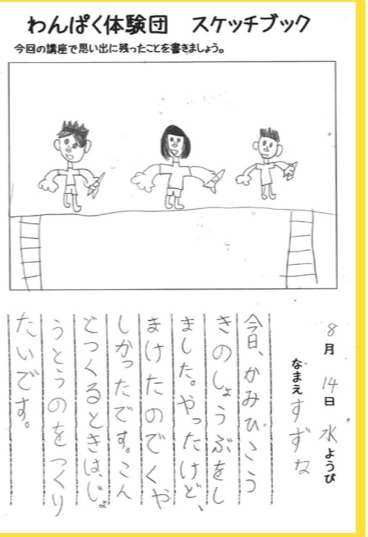 わんぱく体験団　スケッチブック
今回の講座で思い出に残ったことを書きましょう。
8月14日水ようび
なまえすずな
今日、かみひこう
きのしょうぶをし
ました。やったけど、
まけたのでくや
しかったです。こん
どつくるときは、じょ
うとうのをつくり
たいです。